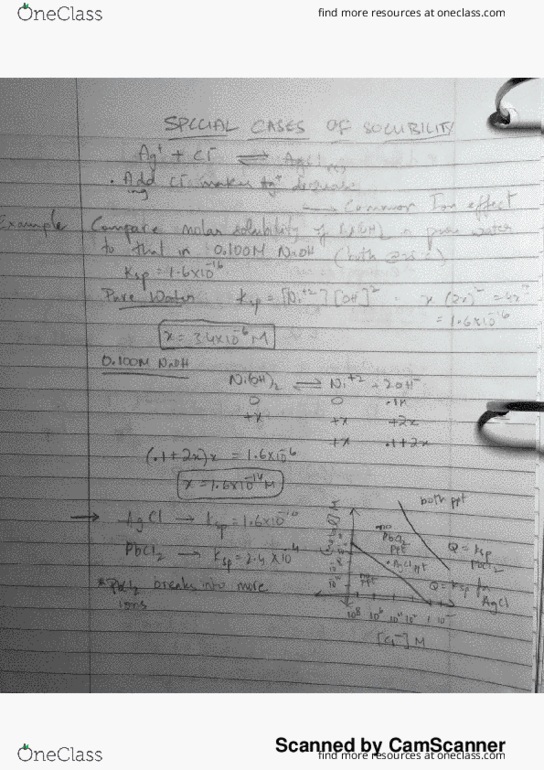 OneClass
find more resources at oneclass.com
SPECIAL CASES OF SOLUBILITY
Ag⁺ + Cl⁻ ⇌ AgCl(s)
• Adding Cl⁻ makes Ag⁺ decrease
→ Common Ion effect
Example Compare molar solubility of Ni(OH)₂ in pure water
to that in 0.100M NaOH (both @
Ksp = 1.6x10⁻¹⁶
Pure Water Ksp = [Ni⁺²][OH⁻]² x (2x)² = 4x³
= 1.6x10⁻¹⁶
x = 3.4x10⁻⁶ M
0.100M NaOH
Ni(OH)₂ ⇌ Ni⁺² + 2OH⁻
0 0 .1x
+x +x +2x
+x .1+2x
(.1+2x)x = 1.6x10⁻¹⁶
x = 1.6x10⁻¹⁴ M
→ AgCl → Ksp = 1.6x10⁻¹⁰
PbCl₂ → Ksp = 2.4x10⁻⁴
*PbCl₂ breaks into more
ions
both ppt
no
PbCl₂
ppt
• AgCl ppt
Q = Ksp
PbCl₂
Q = Ksp for
AgCl
[Cl⁻] M
Scanned by CamScanner
OneClass
find more resources at oneclass.com